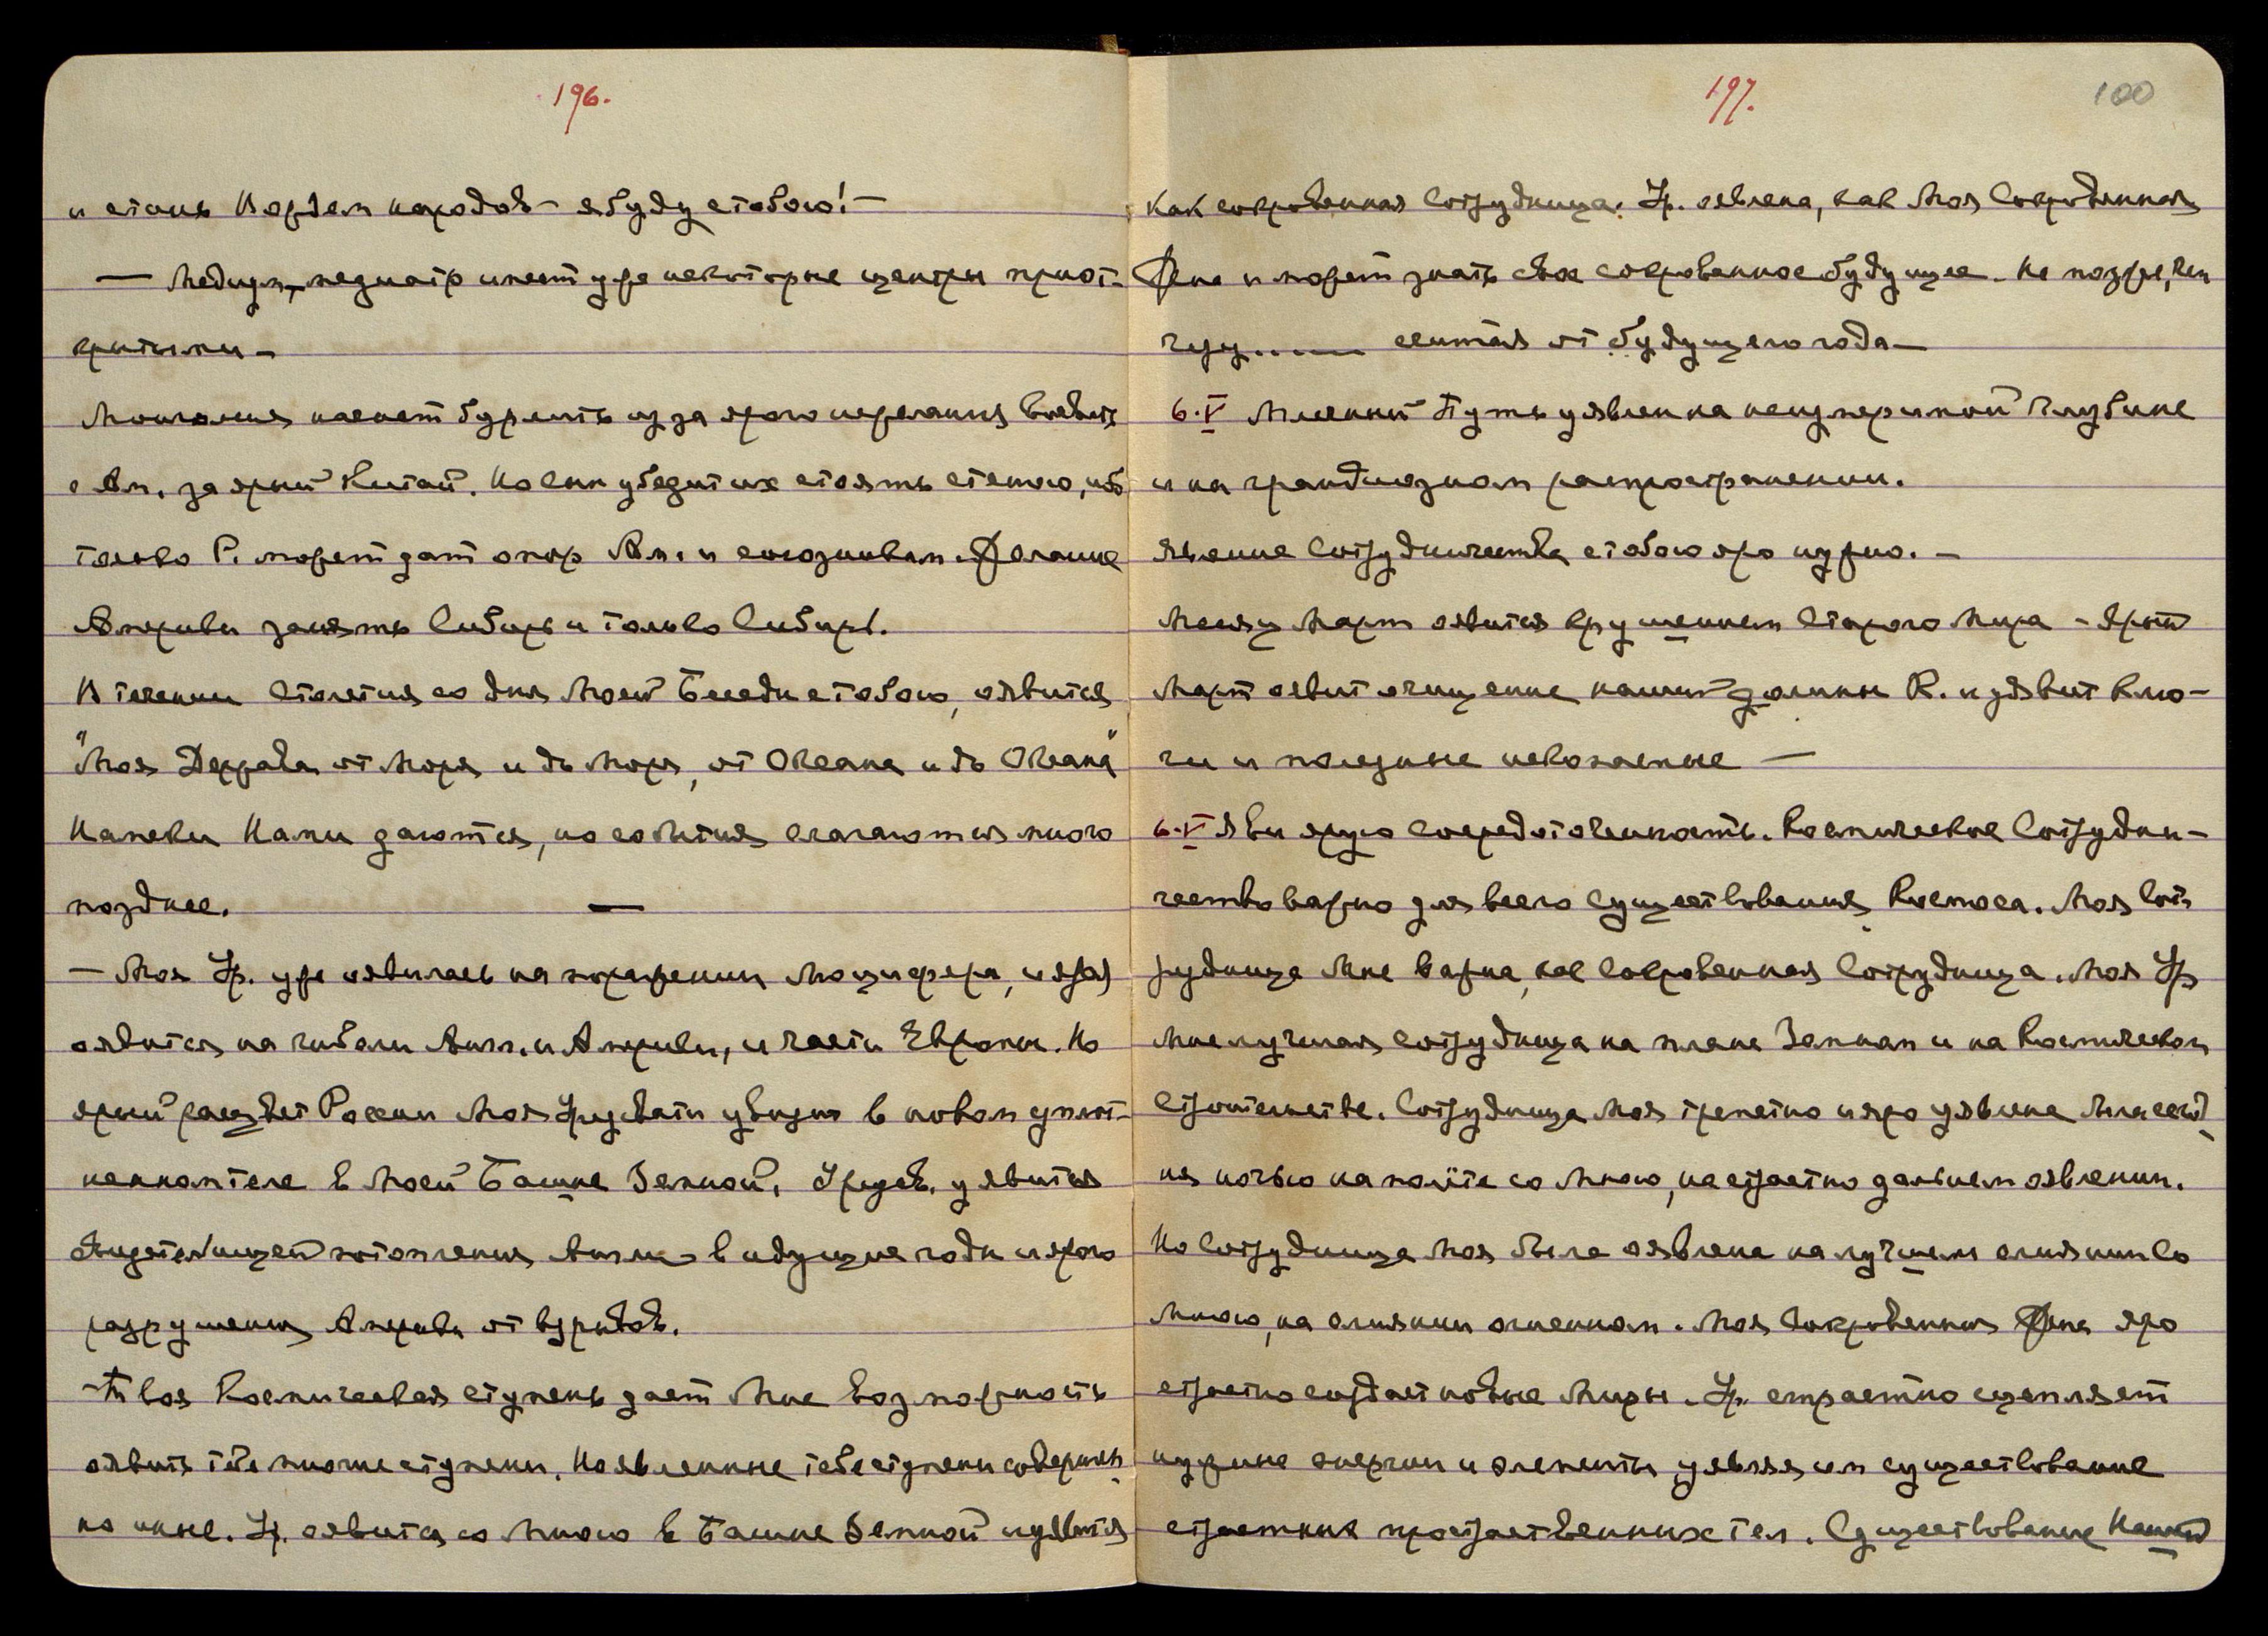 196.
и стань Вождем народов – я буду с тобою! –
— Медиум, медиатр имеет уже некоторые центры приот-
крытыми –
Монголия начнет бурлить из за ярого нежелания воевать
с Ам. за ярый Китай. Но сын убедит их стоять стеною, ибо
только Р. может дат отпор Ам. и союзникам. Желание
Америки занять Сибирь и только Сибирь.
В течении столетия со дня Моей Беседы с тобою, оявится
"Моя Держава от Моря и до Моря, от Океана и до Океана"
Намеки Нами даются, но события слагаются много
позднее. —
— Моя Ур. уже оявилась на поражении Люцифера, и яро
оявится на гибели Англ. и Америки, и части Европы. Но
ярый расцвет России Моя Урусвати увидит в новом уплот-
ненном теле в Моей Башне Земной. Урусв. уявится
свидетельницей потопления Англии в идущие годы и ярого
разрушения Америки от взрывов.
– Твоя Космическая ступень дает Мне возможность
оявить тебе многие ступени. Но явленные тебе ступени совершен-
но иные. Ур. оявится со Мною в Башне Земной и уявится
197.
100
как сокровенная Сотрудница. Ур. оявлена, как Моя Сокровенная
Жена и может знать свое сокровенное будущее. Не позже, чем
чезу..... считая от будущего года –
6.V Млечный Путь уявлен на неизмеримой глубине
и на грандиозном распространении.
Явление Сотрудничества с тобою яро нужно. –
Месяц Март оявится крушением Старого Мира – Ярый
Март оявит очищение нашей долины К. и уявит Клю-
чи и полезные ископаемые —
6.V Яви ярую сосредоточенность. Космическое Сотрудни-
чество важно для всего Существования Космоса. Моя Сот-
рудница Мне важна, как Сокровенная Сотрудница. Моя Ур
Мне лучшая сотрудница на плане Земном и на Космическом
Строительстве. Сотрудница Моя трепетно и яро уявлена
ня ночью на полёте со Мною, на страстно дальнем оявлении.
Но Сотрудница Моя была оявлена на лучшем слиянии со
Мною, на слиянии огненном. Моя Сокровенная Жена яро
страстно создает новые Миры. Ур. страстно сцепляет
нужные энергии и элементы уявляя им существование
страстных пространственных тел. Существование Нашей